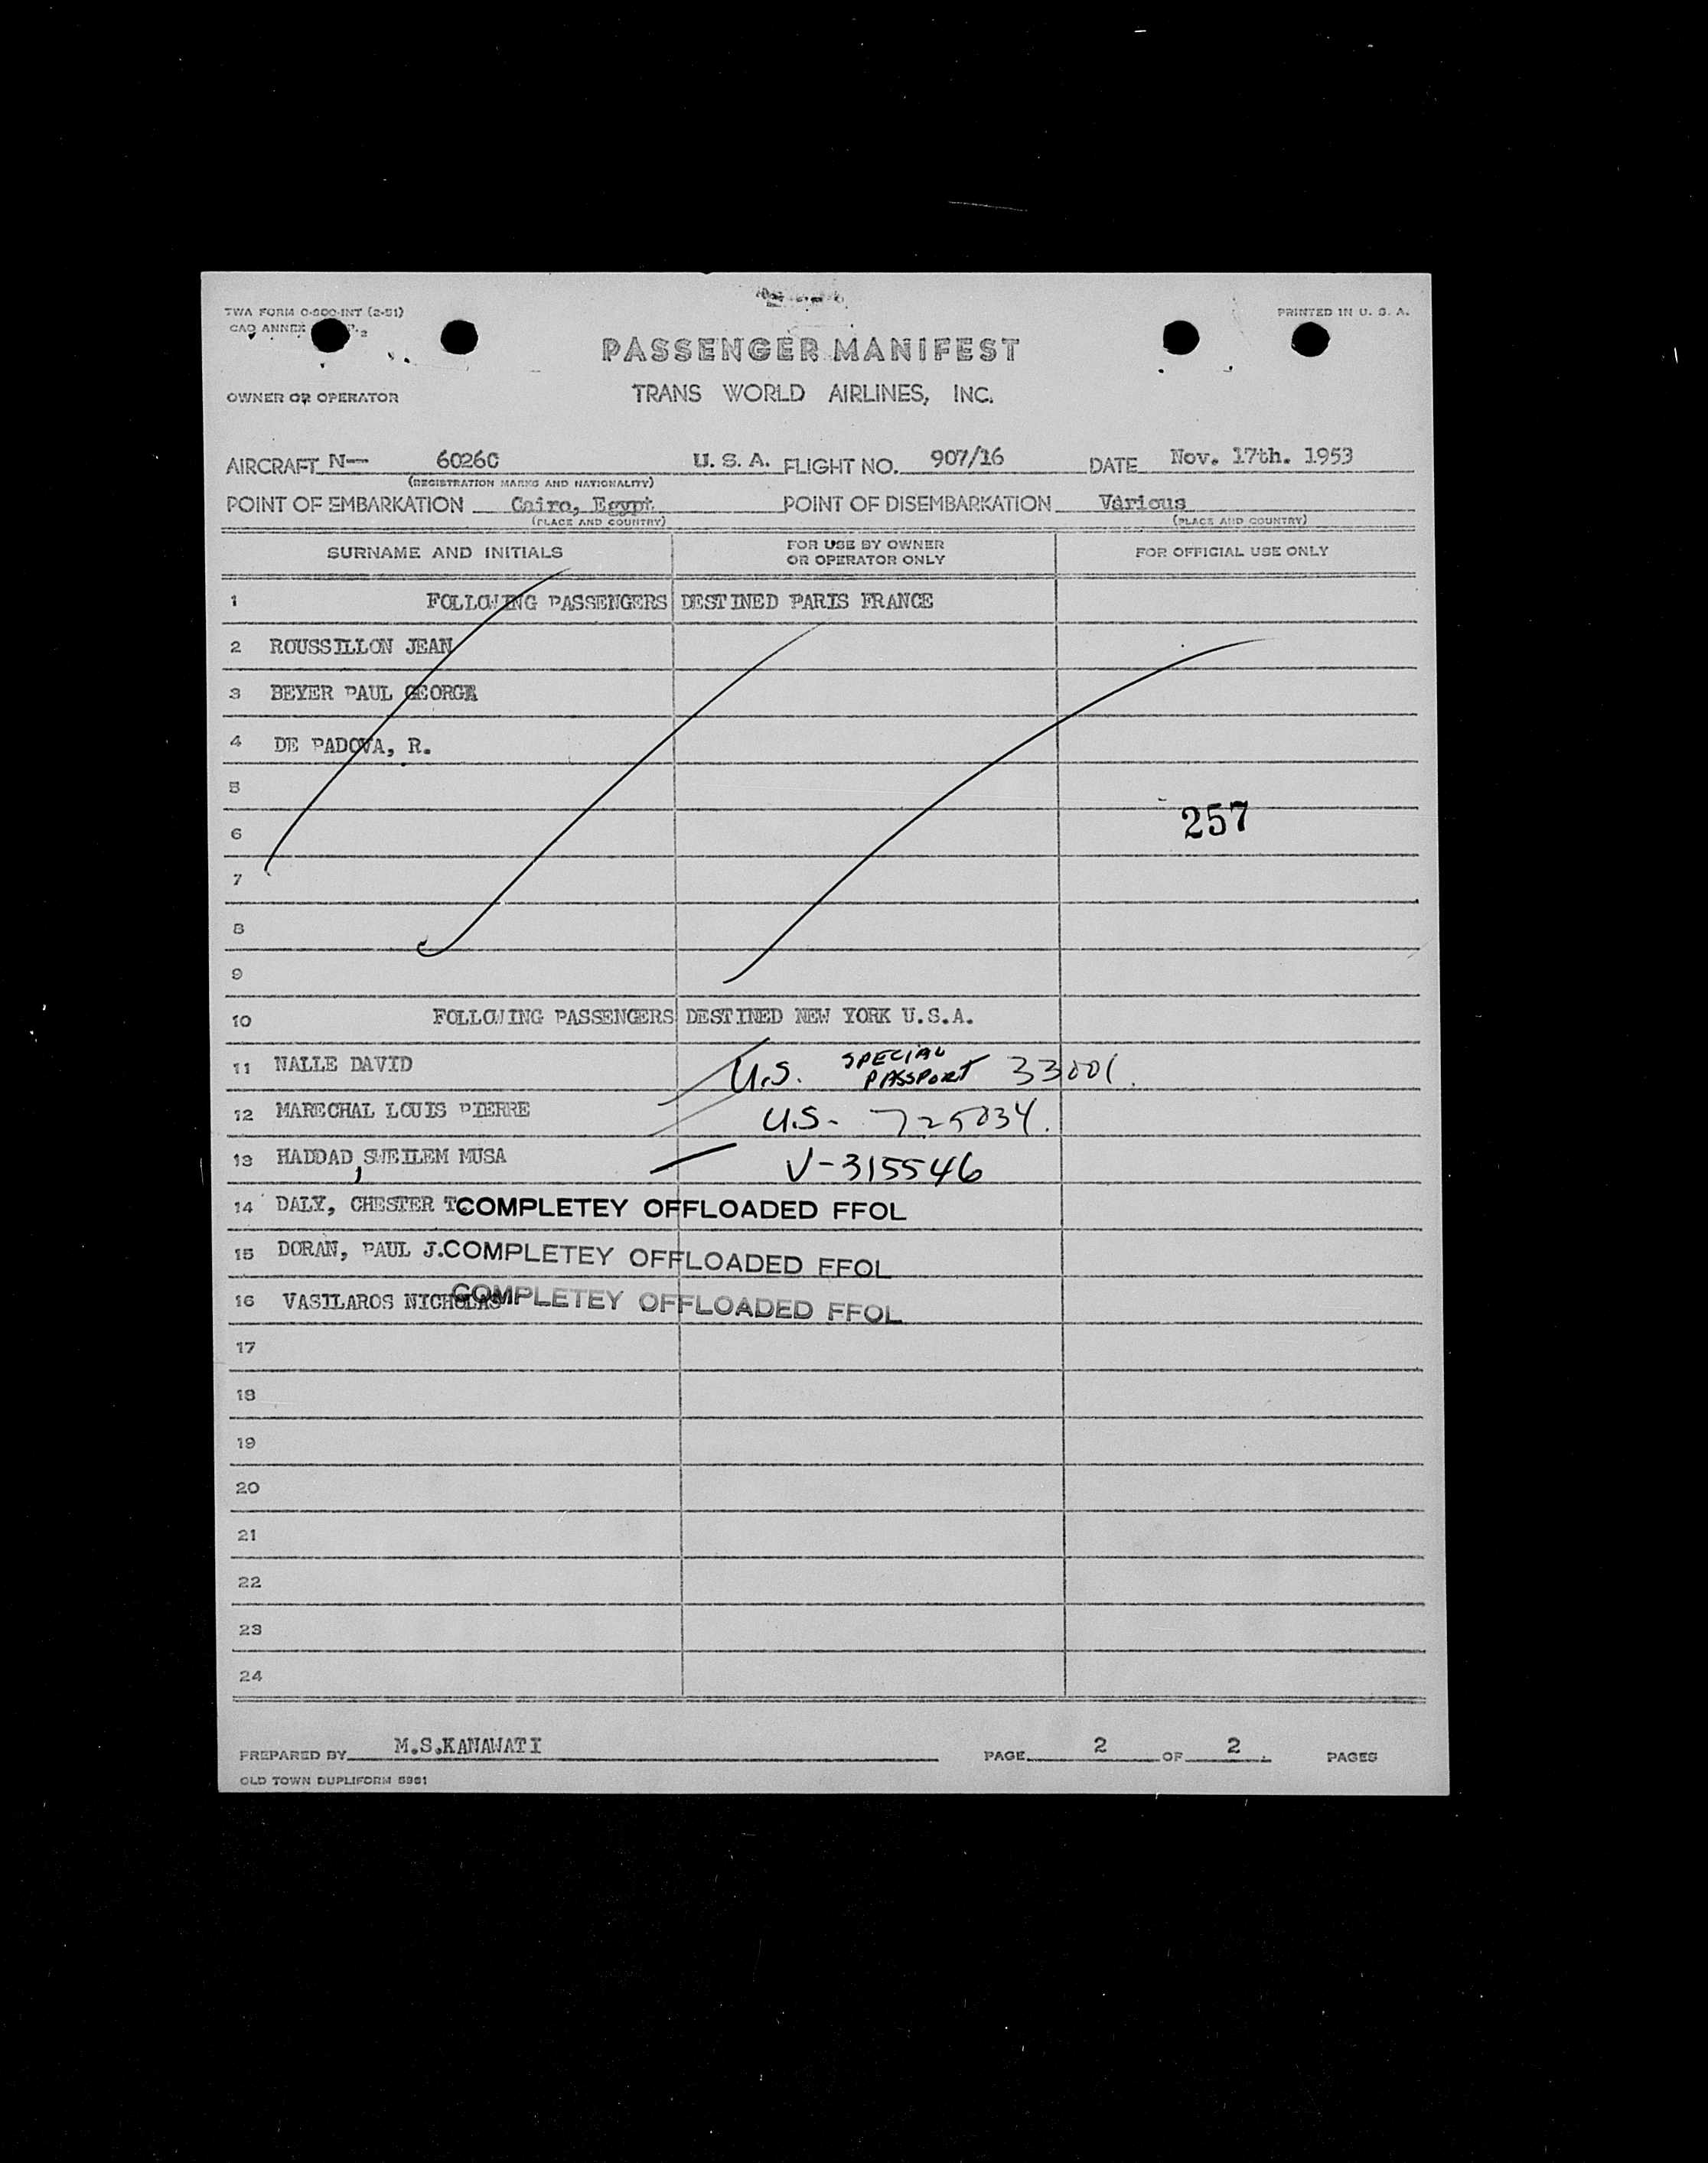 TWA FORM O-500-INT (2-51)
PRINTED IN U. S. A.
CAO ANNEX
PASSENGER MANIFEST
OWNER OR OPERATOR
TRANS WORLD AIRLINES, INC.
AIRCRAFT N— 6026C U. S. A. FLIGHT NO. 907/16 DATE Nov. 17th. 1953
(REGISTRATION MARKS AND NATIONALITY)
POINT OF EMBARKATION Cairo, Egypt POINT OF DISEMBARKATION Various
(PLACE AND COUNTRY) (PLACE AND COUNTRY)
SURNAME AND INITIALS FOR USE BY OWNER OR OPERATOR ONLY FOR OFFICIAL USE ONLY
1 FOLLOWING PASSENGERS DESTINED PARIS FRANCE
2 ROUSSILLON JEAN
3 BEYER PAUL GEORGE
4 DE PADOVA, R.
5
6 257
7
8
9
10 FOLLOWING PASSENGERS DESTINED NEW YORK U.S.A.
11 NALLE DAVID U.S. SPECIAL PASSPORT 33001.
12 MARECHAL LOUIS PIERRE U.S. - 725034.
13 HADDAD, SWEILEM MUSA V-315546
14 DALY, CHESTER T. COMPLETEY OFFLOADED FFOL
15 DORAN, PAUL J. COMPLETEY OFFLOADED FFOL
16 VASILAROS NICHOLAS COMPLETEY OFFLOADED FFOL
17
18
19
20
21
22
23
24
PREPARED BY M.S.KANAWATI PAGE 2 OF 2 PAGES
OLD TOWN DUPLIFORM 5861